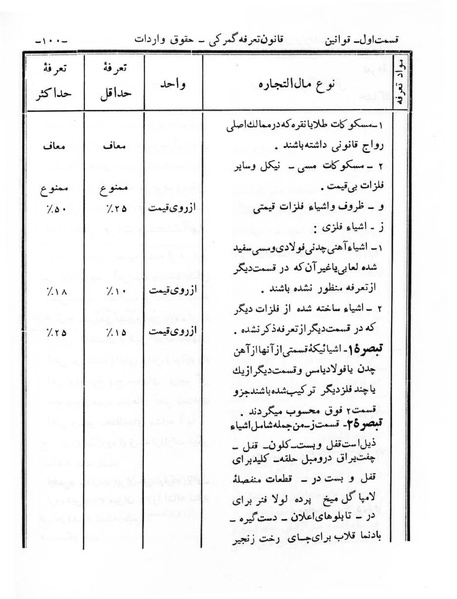 قسمت اول ـ قوانین قانون تعرفه گمرکی ـ حقوق واردات ـ۱۰۰ـ
مواد تعرفه نوع مال‌التجاره واحد تعرفهٔ حداقل تعرفهٔ حداکثر
۱ـ مسکوکات طلا یا نقره که در ممالک اصلی
رواج قانونی داشته باشند . معاف معاف
۲ ـ مسکوکات مسی ـ نیکل و سایر
فلزات بی‌قیمت . ممنوع ممنوع
و ـ ظروف و اشیاء فلزات قیمتی از روی قیمت ۲۵٪ ۵۰٪
ز ـ اشیاء فلزی :
۱ـ اشیاء آهنی چدنی فولادی و مسی سفید
شده لعابی یا غیر آن که در قسمت دیگر
از تعرفه منظور نشده باشند . از روی قیمت ۱۰٪ ۱۸٪
۲ ـ اشیاء ساخته شده از فلزات دیگر
که در قسمت دیگر از تعرفه ذکر نشده . از روی قیمت ۱۵٪ ۲۵٪
تبصرهٔ ۱ـ اشیائیکه قسمتی از آنها از آهن
چدن یا فولاد یا مس و قسمت دیگر از یک
یا چند فلز دیگر ترکیب شده باشند جزو
قسمت ۲ فوق محسوب میگردند .
تبصرهٔ ۲ـ قسمت ز ـ من جمله شامل اشیاء
ذیل است قفل و بست ـ کلون ـ قفل ـ
چفت یراق در و مبل حلقه ـ کلید برای
قفل و بست در ـ قطعات منفصلهٔ
لامپا گل میخ پرده لولا فنر برای
در ـ تابلوهای اعلان ـ دست گیره ـ
بادنما قلاب برای جای رخت زنجیر